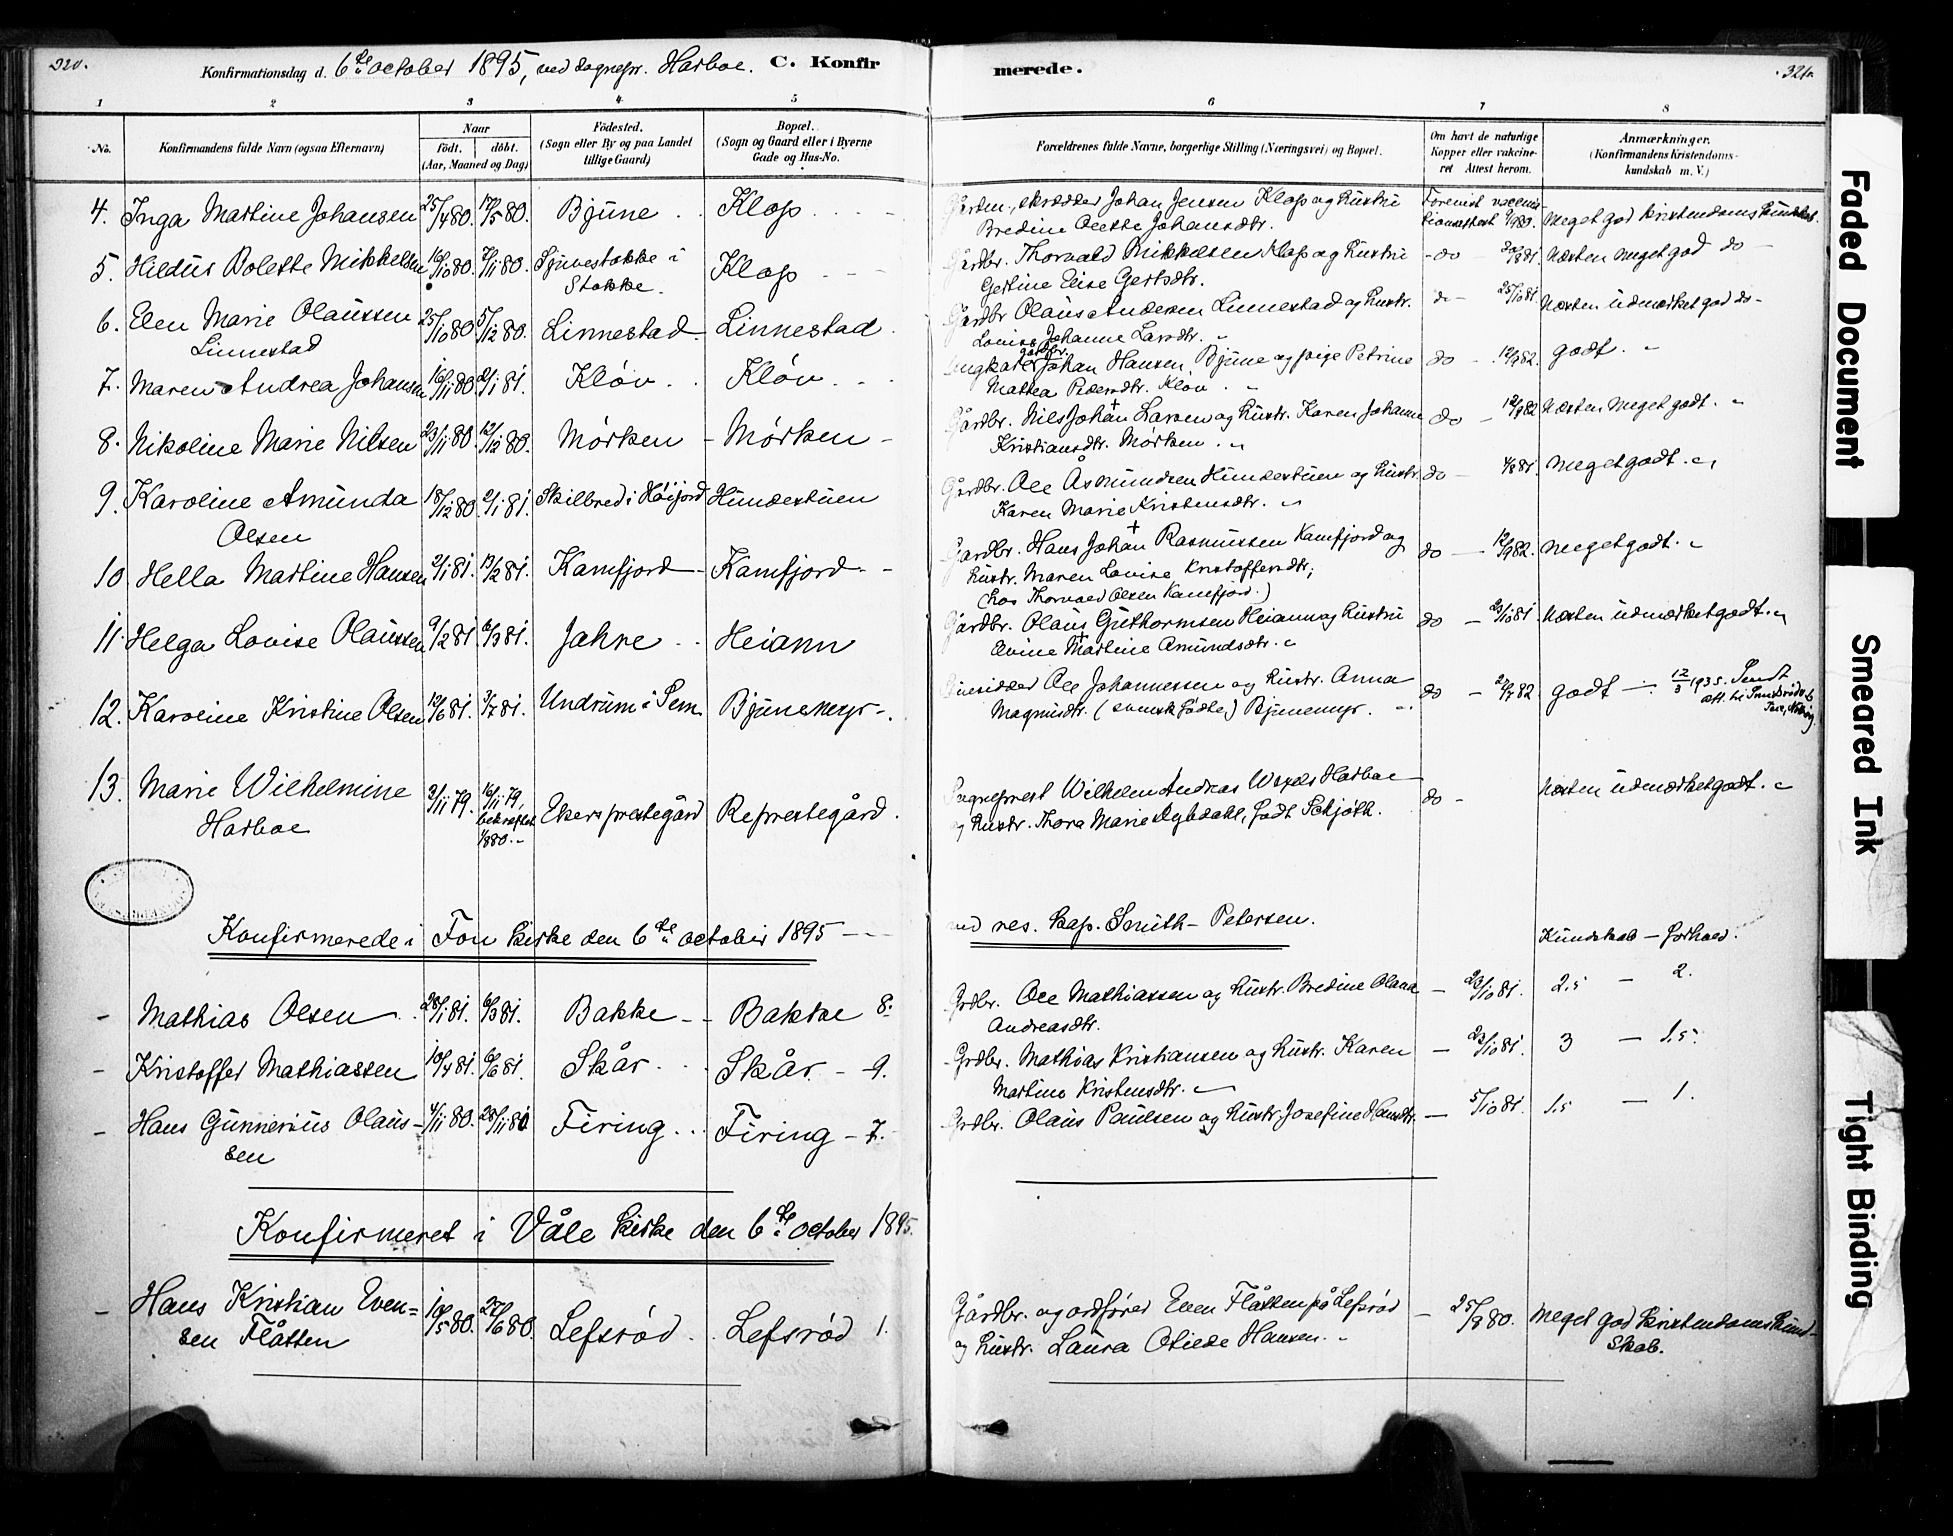 320.
Konfirmationsdag d. 6te october 1895, ved sognepr. Harboe. C. Konfir
merede. 321.
1 2 3 4 5 6 7 8
No. Konfirmandens fulde Navn (ogsaa Efternavn) Naar født. døbt. (Aar, Maaned og Dag) Fødested. (Sogn eller By og paa Landet tillige Gaard) Bopæl. (Sogn og Gaard eller i Byerne Gade og Hus-No.
Forældrenes fulde Navne, borgerlige Stilling (Næringsvei) og Bopæl. Om havt de naturlige Kopper eller vakcineret Attest herom. Anmærkninger. (Konfirmandens Kristendomskundskab m. V.)
4. Inga Martine Johansen 25/4 80. 17/5 80. Bjune Klop
skrædder Johan Jensen Klop og hustru
Bredine Olette Johansdtr. Meget god kristendomskundskab.
5. Hildus Bolette Mikkelsen 10/10 80. 7/11 80. i Stokke. Klop
Gårdbr. Thorvald Mikkelsen Klop og hustru
Gertine Elise Gertsdtr. do Næsten meget god do
6. Elen Marie Olaussen 25/10 80 5/12 80. Linnestad Linnestad
Linnestad
Gårdbr Olaus Andersen Linnestad og hustr.
Lovise Johanne Larsdtr. do 25/10 81. Næsten udmærket god do
7. Maren Andrea Johansen 16/11 80 2/1 81. Kløv Kløv
Ungkarl gårdbr. Johan Hansen Bjune og pige Petrine
Mathea Pedersdtr. Kløv do 12/9 82. godt.
8. Nikoline Marie Nilsen 23/11 80 12/12 80. Mørken Mørken
Gårdbr. Nils Johan Larsen og hustr. Karen Johanne
Kristiansdtr. Mørken. do 12/9 82 Næsten meget godt.
9. Karoline Amunda 18/12 80 2/1 81. Skilbred i Høijord Hundestuen
Olsen
Gårdbr. Ole Åsmundsen Hundestuen og hustr.
Karen Marie Kristensdtr. do meget godt.
10 Hella Martine Hansen 2/1 81. 13/2 81. Kamfjord Kamfjord
Gårdbr. Hans Johan Rasmussen Kamfjord og
hustr. Maren Lovise Kristoffersdtr;
(hos Thorvald Olsen Kamfjord.) do 12/9 82. meget godt.
11. Helga Lovise Olaussen 9/2 81 6/3 81. Jahre Heiann
Gårdbr. Olaus Guthormsen Heiann og hustru
Martine Amundsdtr. do 23/10 81. Næsten udmærket godt.
12. Karoline Kristine Olsen 12/6 81. 3/7 81. Undrum i Sem Bjunemyr
Ole Johannessen og hustr. Anna
Magnusdtr. (svensk fødte) Bjunemyr. do godt 12/3 1935. Sendt
att. til
13. Marie Wilhelmine 3/11 79. 16/11 79, bekræftet 1/8 80. Ekers prestegård Re prestegård.
Harboe
Sogneprest Wilhelm Andreas Wexels Harboe
og hustr. Thora Marie Dybdahl, født Schjøth. do Næsten udmærket godt.
Konfirmerede i Fon kirke den 6te october 1895
ved res. kap. Smith-Petersen. Kundskab - forhold.
Mathias Olsen 28/1 81. 6/3 81. Bakke Bakke 8.
Grdbr. Ole Mathiassen og hustr. Bredine Olava
Andreasdtr. 23/10 81. 2.5 2.
Kristoffer Mathiassen 10/4 81. 6/6 81. Skår Skår 9.
Grdbr. Mathias Kristiansen og hustr. Karen
Martine Kristensdtr. 23/10 81. 3 1.5
Hans Gunnerius Olaus- 4/11 80. 28/11 80 Firing Firing 7.
sen
Grdbr. Olaus Paulsen og hustr. Josefine Hansdtr. 5/10 81. 1.5 1.
Konfirmeret i Våle kirke den 6te october 1895.
Hans Kristian Even= 10/5 80. 27/6 80. Lefsrød Lefsrød 1.
sen Flåtten
Gårdbr. og ordfører Even Flåtten på Lefsrød
og hustr. Laura Otilde Hansen. 25/9 80. Meget god kristendomskund-
skab.
Faded Document
Smeared Ink
Tight Binding